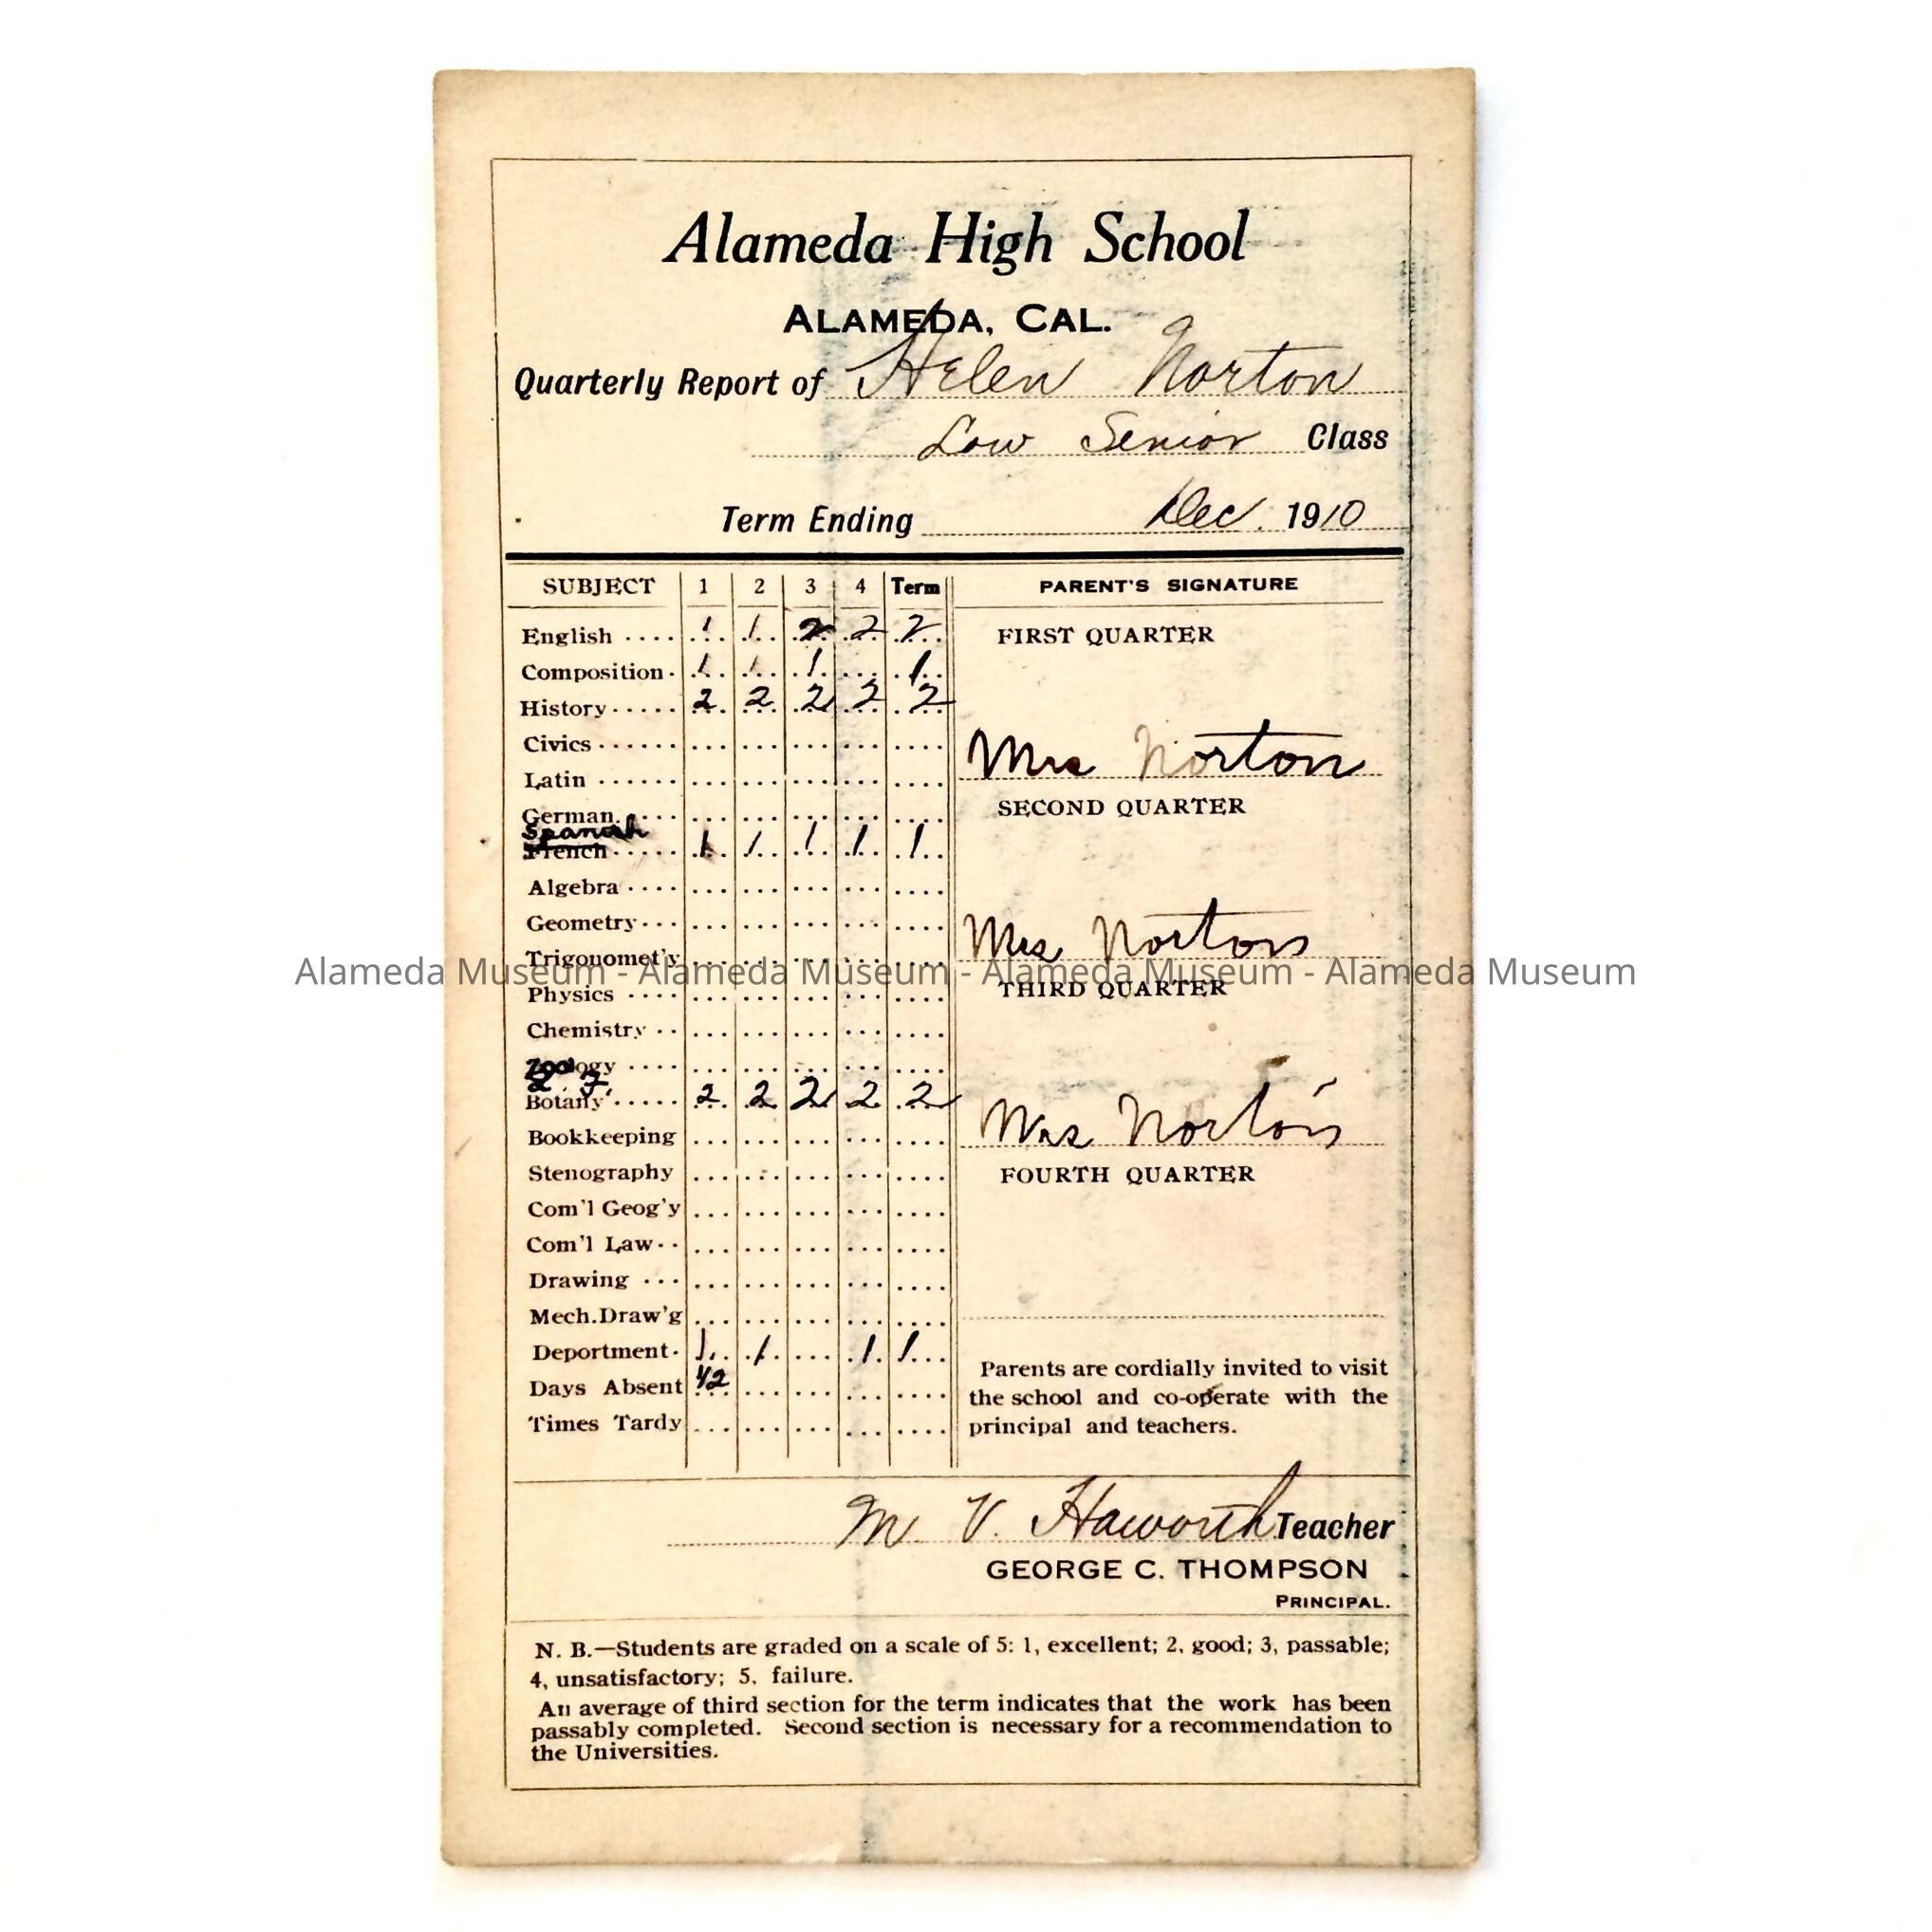 Alameda High School
ALAMEDA, CAL.
Quarterly Report of Helen Norton
Low Senior Class
Term Ending Dec. 1910
SUBJECT 1 2 3 4 Term PARENT'S SIGNATURE
English 1 1 2 2 2 FIRST QUARTER
Composition 1 1 1 1
History 2 2 2 2 2
Civics
Mrs Norton
Latin
German SECOND QUARTER
Spanish
French 1 1 1 1 1
Algebra
Geometry
Mrs Norton
Trigonomet'y
Alameda Museum - Alameda Museum - Alameda Museum - Alameda Museum
Physics THIRD QUARTER
Chemistry
Botany 2 2 2 2 2
Mrs Norton
Bookkeeping
Stenography FOURTH QUARTER
Com'l Geog'y
Com'l Law
Drawing
Mech.Draw'g
Deportment 1 1 1 1
Days Absent 1/2
Times Tardy
Parents are cordially invited to visit
the school and co-operate with the
principal and teachers.
M V. Haworth Teacher
GEORGE C. THOMPSON
PRINCIPAL.
N. B.—Students are graded on a scale of 5: 1, excellent; 2, good; 3, passable;
4, unsatisfactory; 5, failure.
An average of third section for the term indicates that the work has been
passably completed. Second section is necessary for a recommendation to
the Universities.